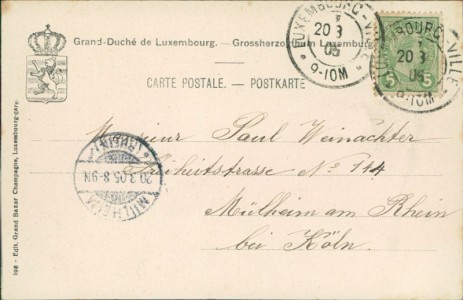 LUXEMBOURG-VILLE
20 3
05
9-10M
LUXEMBOURG-VILLE
20 3
05
9-10M
5 5
Grand-Duché de Luxembourg. — Grossherzogtum Luxemburg.
CARTE POSTALE. — POSTKARTE
Monsieur Paul Weinachter
No 114
Mülheim am Rhein
bei Köln.
MÜLHEIM (RHEIN)
20.3.05.8-9N
108 - Edit. Grand Bazar Champagne, Luxembourg-gare.